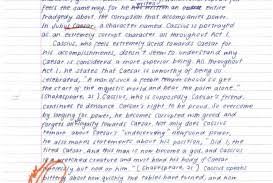 feels the same way, for he has written an entire
tragedy about the corruption that accompanies power.
In Julius Caesar, a character named Cassius is portrayed
as an extremely corrupt character as throughout Act I.
Cassius, who feels extremely towards Caesar for
his accomplishments, doesn't seem to understand why
Caesar is considered a more superior being. All throughout
Act I, he states that Caesar is unworthy of being so
celebrated, "A man of such a feeble temper should so get
the start of the majestic world and bear the palm alone."
(Shakespeare, 21.) Cassius, supposedly Caesar's friend,
continues to denounce Caesar's right to be proud. So overcome
by longing for power, he becomes corrupted with greed and
forges animosity towards Caesar. Not only does Cassius
remark about Caesar's "undeserving" newfound power,
he also makes statements about his position, "Did I, the
tired Caesar. And this man is now become a god, and Cassius
wretched creature and must bend his body if Caesar
but nod on him." (Shakespeare, 21) Cassius speaks
bitterly about how quickly the tables have turned, and how